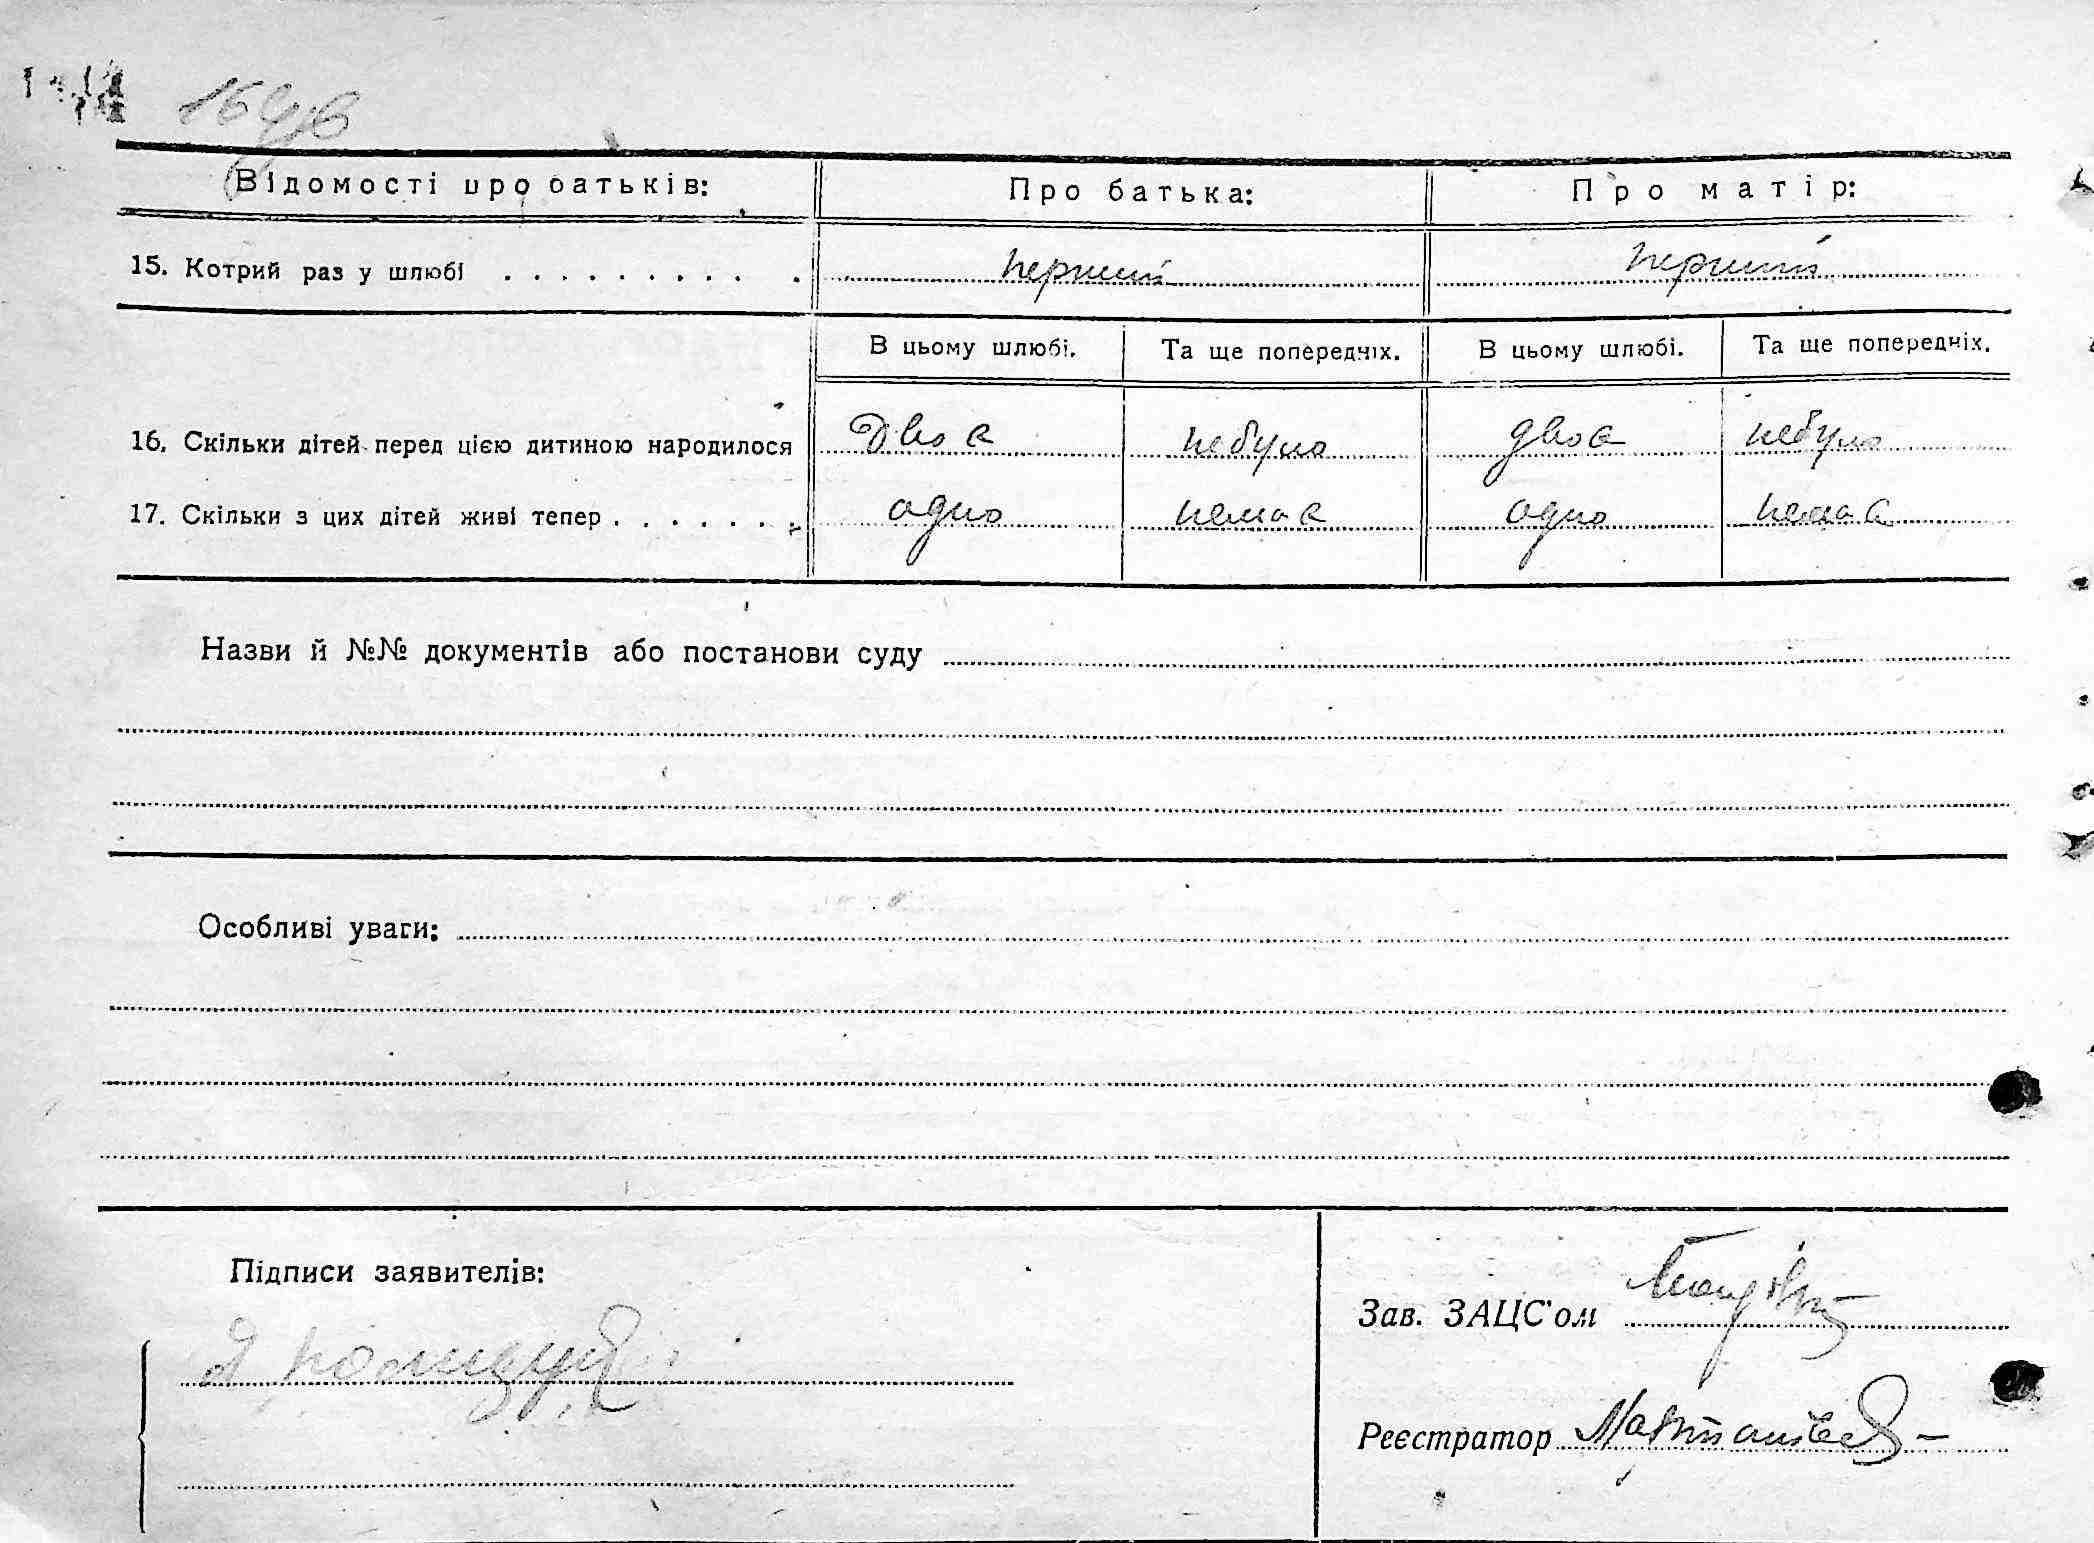 Відомості про батьків: Про батька: Про матір:
15. Котрий раз у шлюбі . . . . . . . . . . . перший перший
В цьому шлюбі. Та ще попередніх. В цьому шлюбі. Та ще попередніх.
16. Скільки дітей перед цією дитиною народилося двоє небуло двоє небуло
17. Скільки з цих дітей живі тепер . . . . . . . одно немає одно немає
Назви й №№ документів або постанови суду
Особливі уваги:
Підписи заявителів:
Зав. ЗАЦС'ом
Реєстратор